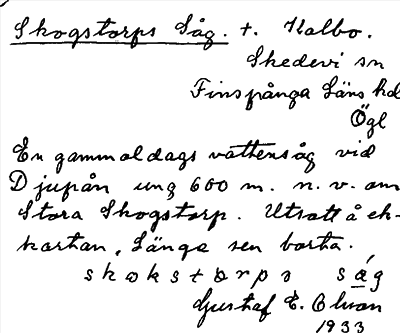 Skogstorps Såg. t. Kalbo.
Skedevi sn
Finspånga Läns hd
Ögl
En gammaldags vattensåg vid
Djupån ung 600 m. n. v. om
Stora Skogstorp. Utsatt å ek-
kartan. Länge sen borta.
skokstorps såg
Gustaf E. Olson
1933